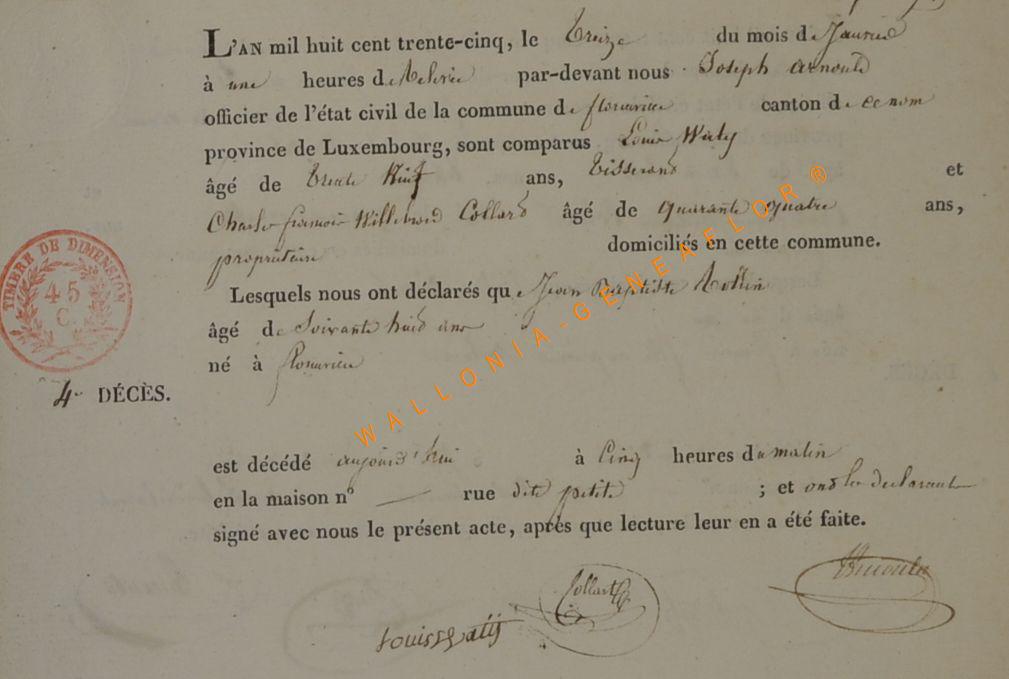 L'AN mil huit cent trente-cinq, le treize du mois de Janvier
à une heures de Relevée par-devant nous Joseph arnould
officier de l'état civil de la commune de florenville canton de ce nom
province de Luxembourg, sont comparus Louis Waty
âgé de trente huit ans, tisserand et
Charles françois Willebrord Collard âgé de quarante quatre ans,
propriétaire domiciliés en cette commune.
Lesquels nous ont déclarés que Jean Baptiste Rollin
âgé de Soixante huit ans
né à florenville
4e DÉCÈS.
est décédé aujourd'hui à Cinq heures du matin
en la maison nº — rue dite petite ; et ont les declarant
signé avec nous le présent acte, après que lecture leur en a été faite.
Collard
Louis Watij
TIMBRE DE DIMENSION
45
C.
WALLONIA-GENEAFLOR ®